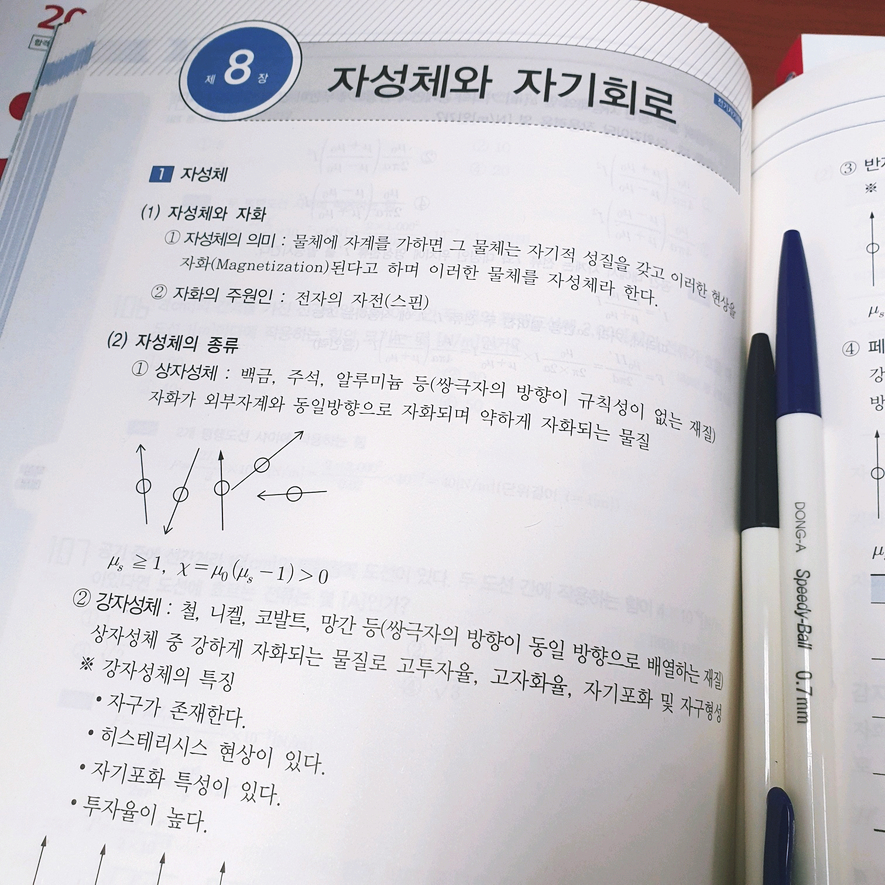 20
합격
제 8 장
자성체와 자기회로
1 자성체
(1) 자성체와 자화
① 자성체의 의미 : 물체에 자계를 가하면 그 물체는 자기적 성질을 갖고 이러한 현상을
자화(Magnetization)된다고 하며 이러한 물체를 자성체라 한다.
② 자화의 주원인 : 전자의 자전(스핀)
(2) 자성체의 종류
① 상자성체 : 백금, 주석, 알루미늄 등(쌍극자의 방향이 규칙성이 없는 재질)
자화가 외부자계와 동일방향으로 자화되며 약하게 자화되는 물질
μs ≧ 1, χ = μ0(μs − 1) > 0
② 강자성체 : 철, 니켈, 코발트, 망간 등(쌍극자의 방향이 동일 방향으로 배열하는 재질)
상자성체 중 강하게 자화되는 물질로 고투자율, 고자화율, 자기포화 및 자구형성
※ 강자성체의 특징
• 자구가 존재한다.
• 히스테리시스 현상이 있다.
• 자기포화 특성이 있다.
• 투자율이 높다.
③ 반자
※
μs
④ 페
강
방
DONG-A Speedy-Ball 0.7mm